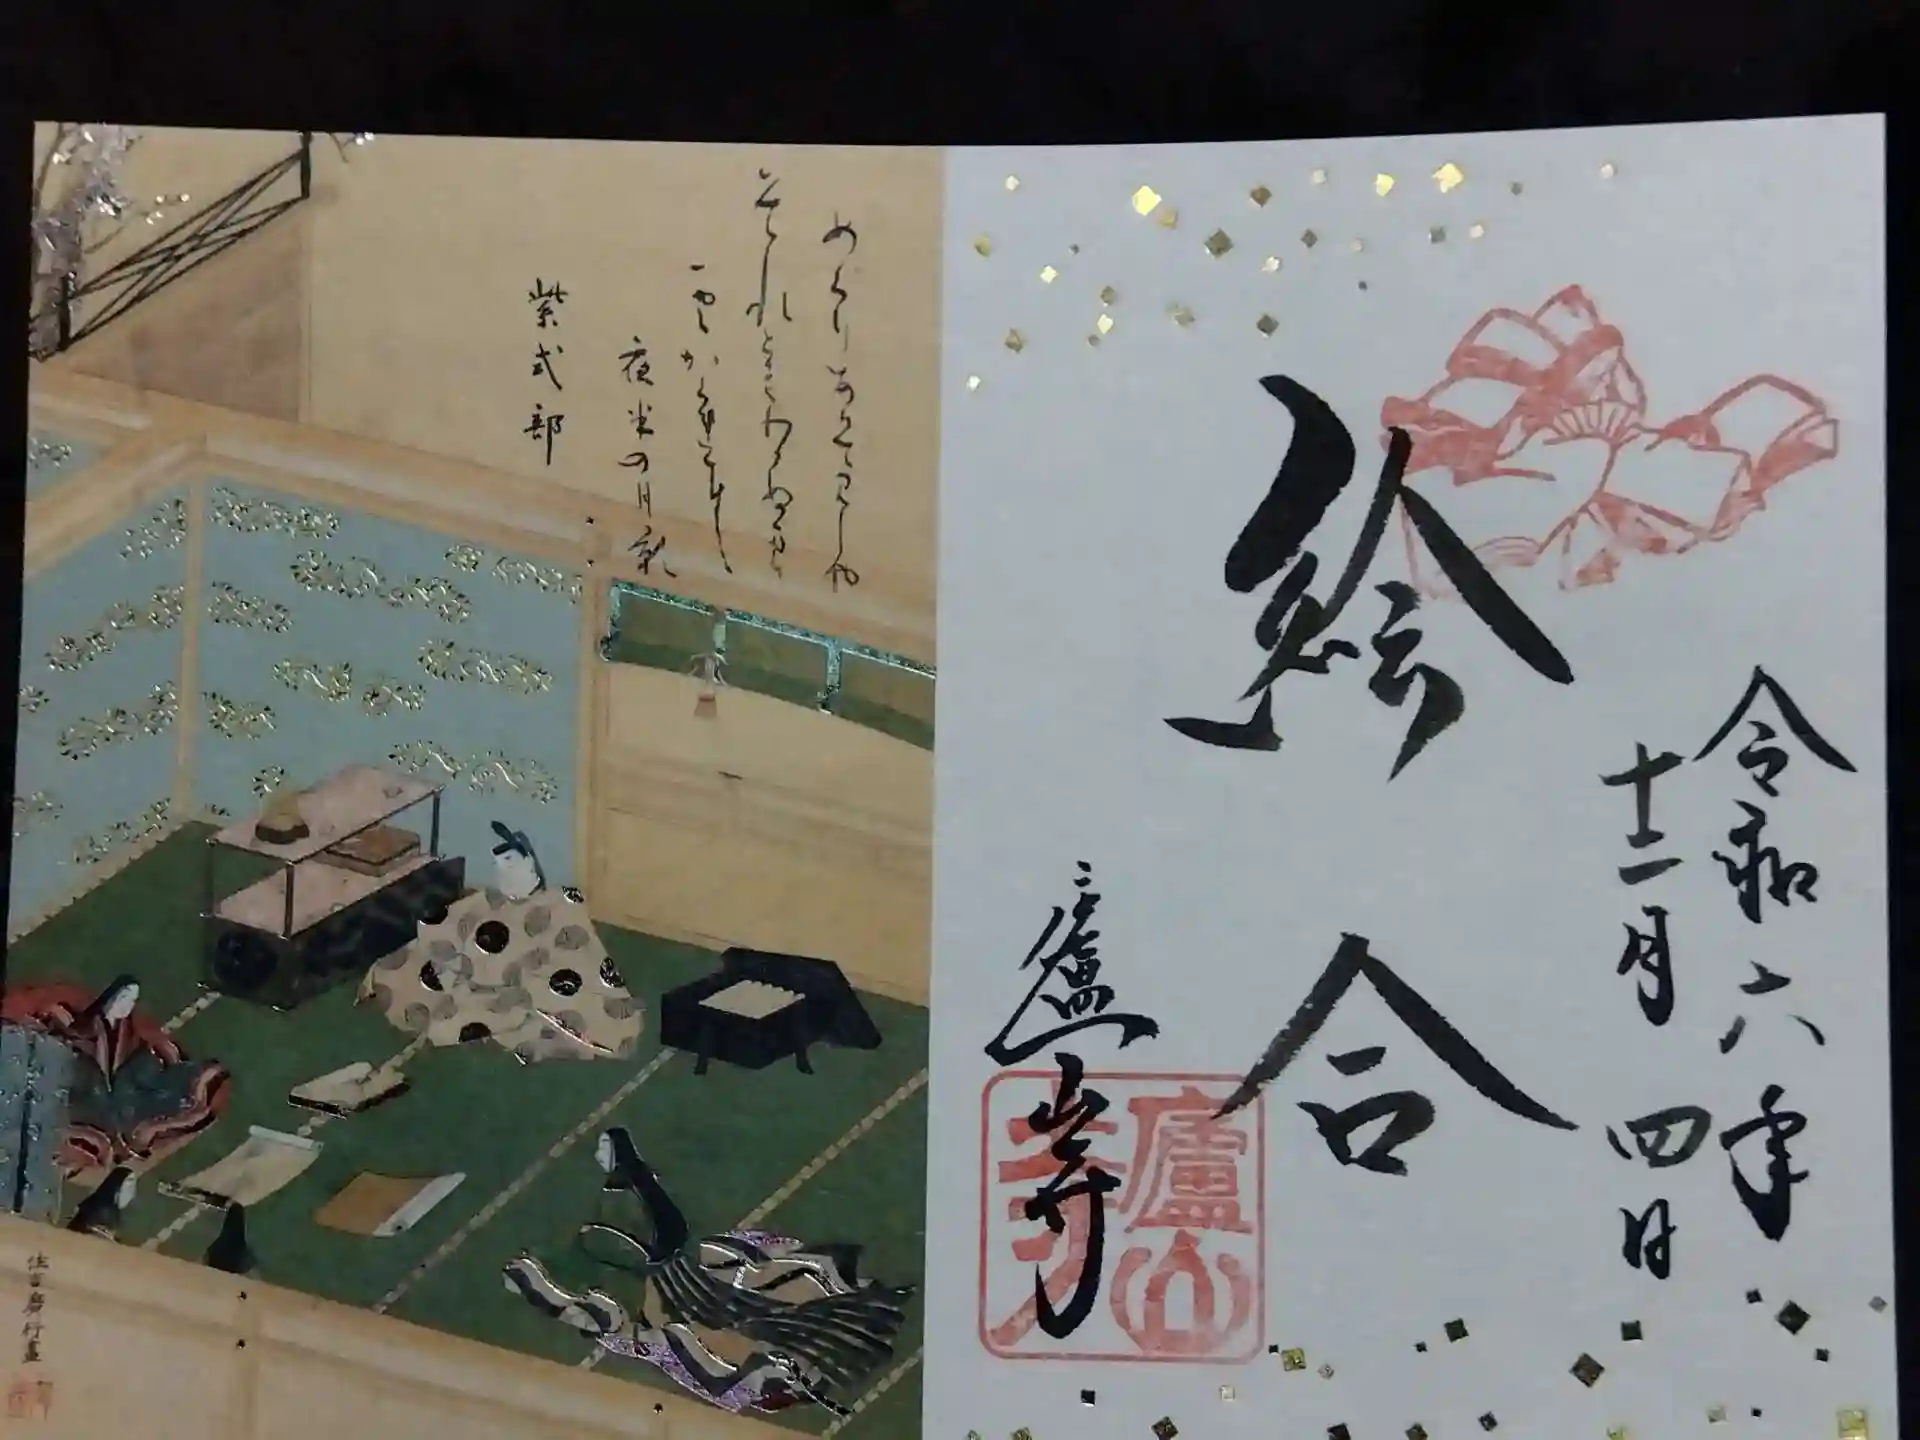 令和六年
十二月四日
絵合
廬山寺
廬山寺
めくりあひてみしや
それともわかぬまに
雲かくれにし
夜半の月影
紫式部
住吉廣行畫